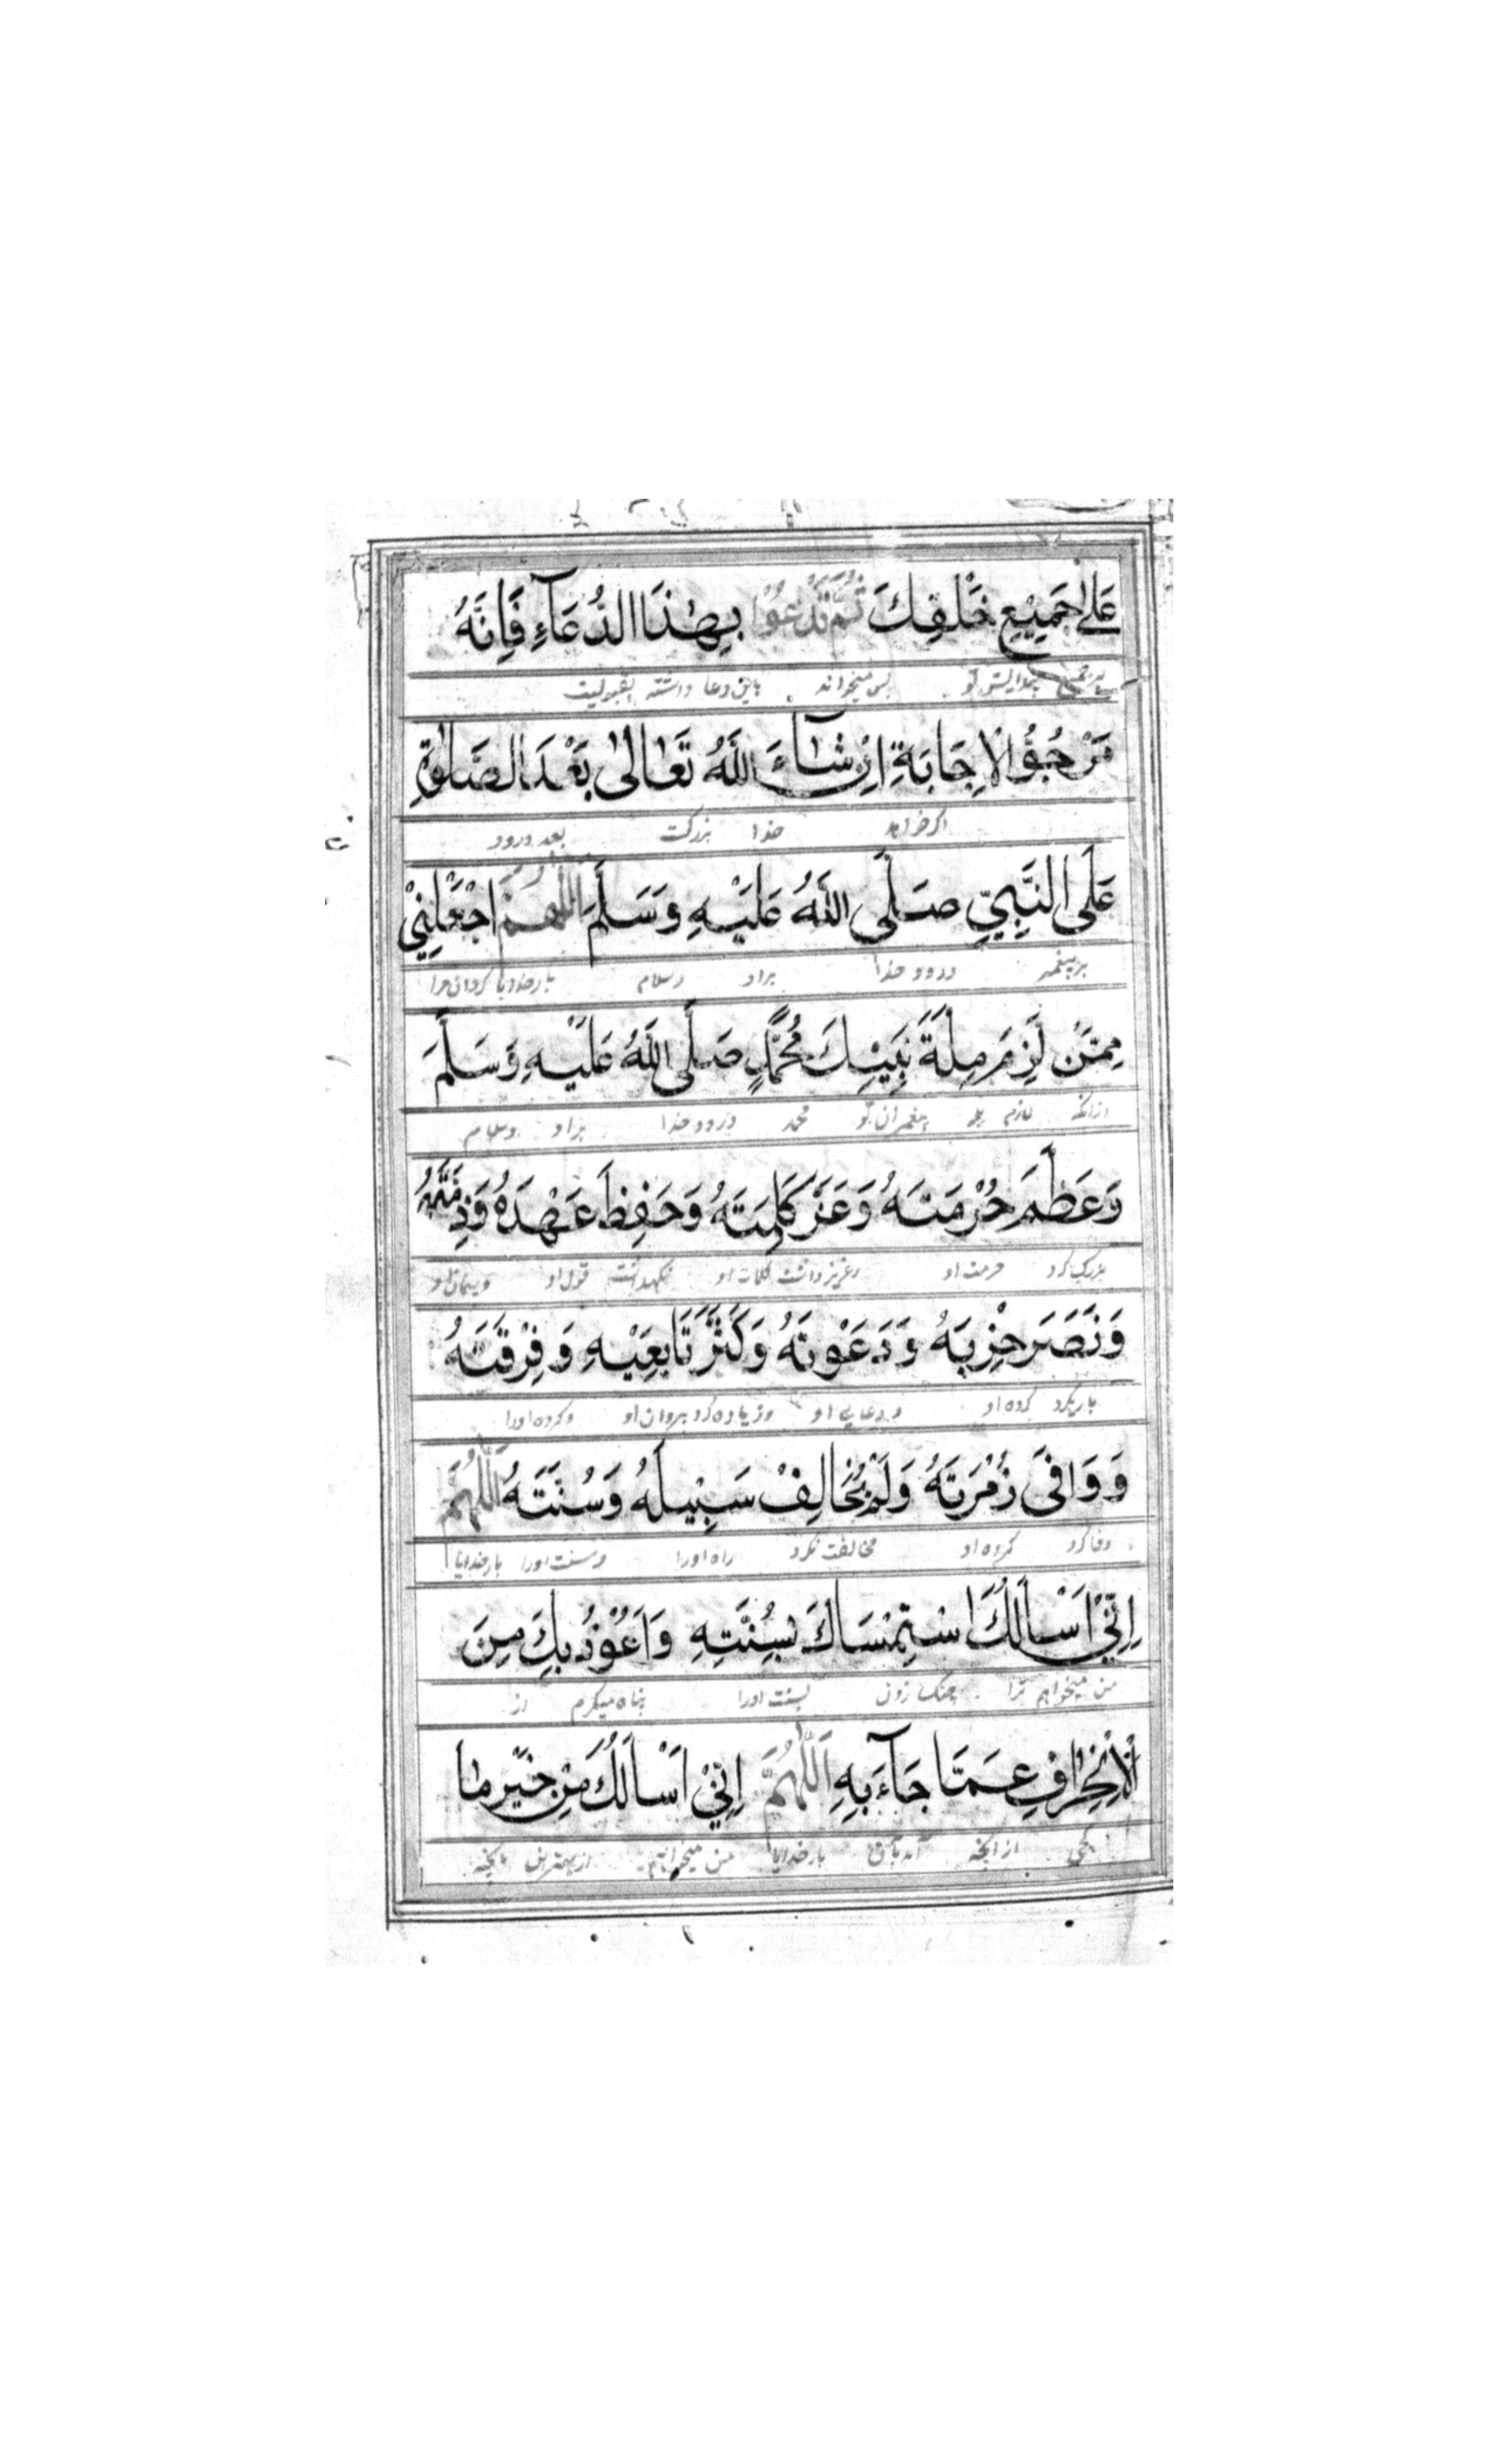 عَلٰى جَمِيْعِ خَلْقِكَ ثُمَّ تَدْعُوْا بِهٰذَا الدُّعَآءِ فَاِنَّهُ
پس میخواند باین دعا
مَرْجُوُّ الْاِجَابَةِ اِنْ شَآءَ اللّٰهُ تَعَالٰى بَعْدَ الصَّلٰوةِ
اگر خواهد خدا بزرگست بعد درود
عَلَى النَّبِيِّ صَلَّى اللّٰهُ عَلَيْهِ وَسَلَّمَ اَللّٰهُمَّ اجْعَلْنِيْ
بر پیغمبر درود خدا براو وسلام بارخدایا گردان مرا
مِمَّنْ لَزِمَ مِلَّةَ نَبِيِّكَ مُحَمَّدٍ صَلَّى اللّٰهُ عَلَيْهِ وَسَلَّمَ
ازانکه لازم پیغمبران تو محمد درود خدا براو وسلام
وَعَظَّمَ حُرْمَتَهُ وَعَزَّ كَلِمَتَهُ وَحَفِظَ عَهْدَهُ وَذِمَّتَهُ
بزرگ کرد حرمت او وعزیز داشت کلمات او نگهداشت قول او وپیمان او
وَنَصَرَ حِزْبَهُ وَدَعْوَتَهُ وَكَثَّرَ تَابِعِيْهِ وَفِرْقَتَهُ
یاریکرد گروه او ودعایی او وزیاده کرد پیروان او وگروه اورا
وَوَافٰى زُمْرَتَهُ وَلَمْ يُخَالِفْ سَبِيْلَهُ وَسُنَّتَهُ اَللّٰهُمَّ
وفا کرد گروه او مخالفت نکرد راه اورا وسنت اورا بارخدایا
اِنِّيْ اَسْاَلُكَ اسْتِمْسَاكَ بِسُنَّتِهِ وَاَعُوْذُ بِكَ مِنَ
من میخواهم ترا چنگ زدن بسنت اورا پناه میگیرم از
الْاِنْحِرَافِ عَمَّا جَآءَ بِهِ اَللّٰهُمَّ اِنِّيْ اَسْاَلُكَ مِنْ خَيْرِ مَا
کجی ازانچه آمد بآن بارخدایا من میخواهم از بهترین آنچه